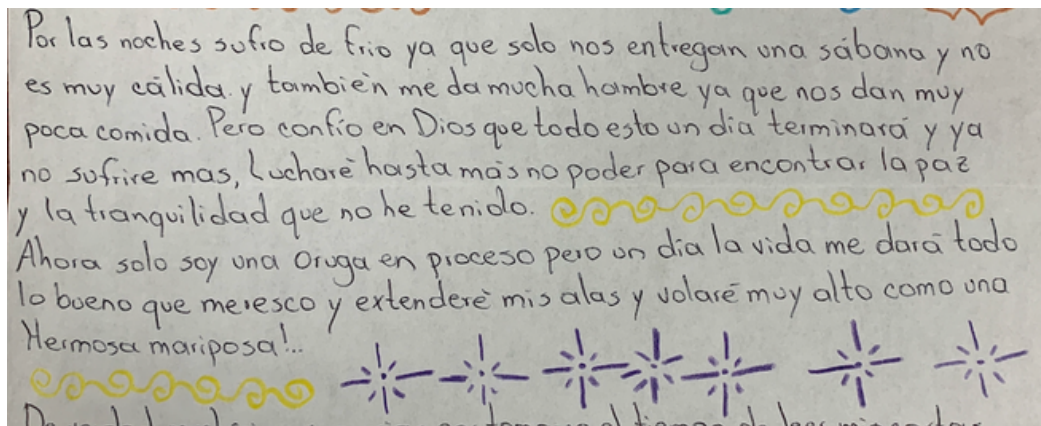 Por las noches sufro de frio ya que solo nos entregan una sábana y no
es muy cálida y también me da mucha hambre ya que nos dan muy
poca comida. Pero confío en Dios que todo esto un dia terminará y ya
no sufrire mas, Lucharé hasta más no poder para encontrar la paz
y la tranquilidad que no he tenido.
Ahora solo soy una oruga en proceso pero un día la vida me dará todo
lo bueno que meresco y extenderé mis alas y volaré muy alto como una
Hermosa mariposa!..